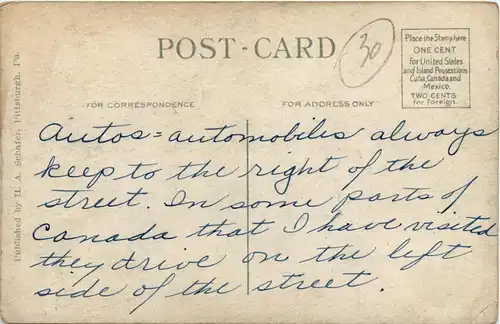 POST-CARD
30
Place the Stamp here
ONE CENT
for United States
and Island Possessions
Cuba, Canada and
Mexico.
TWO CENTS
for Foreign.
FOR CORRESPONDENCE
FOR ADDRESS ONLY
Published by H. A. Schafer, Pittsburgh, Pa.
Autos = automobiles always
keep to the right of the
street. In some parts of
Canada that I have visited
they drive on the left
side of the street.